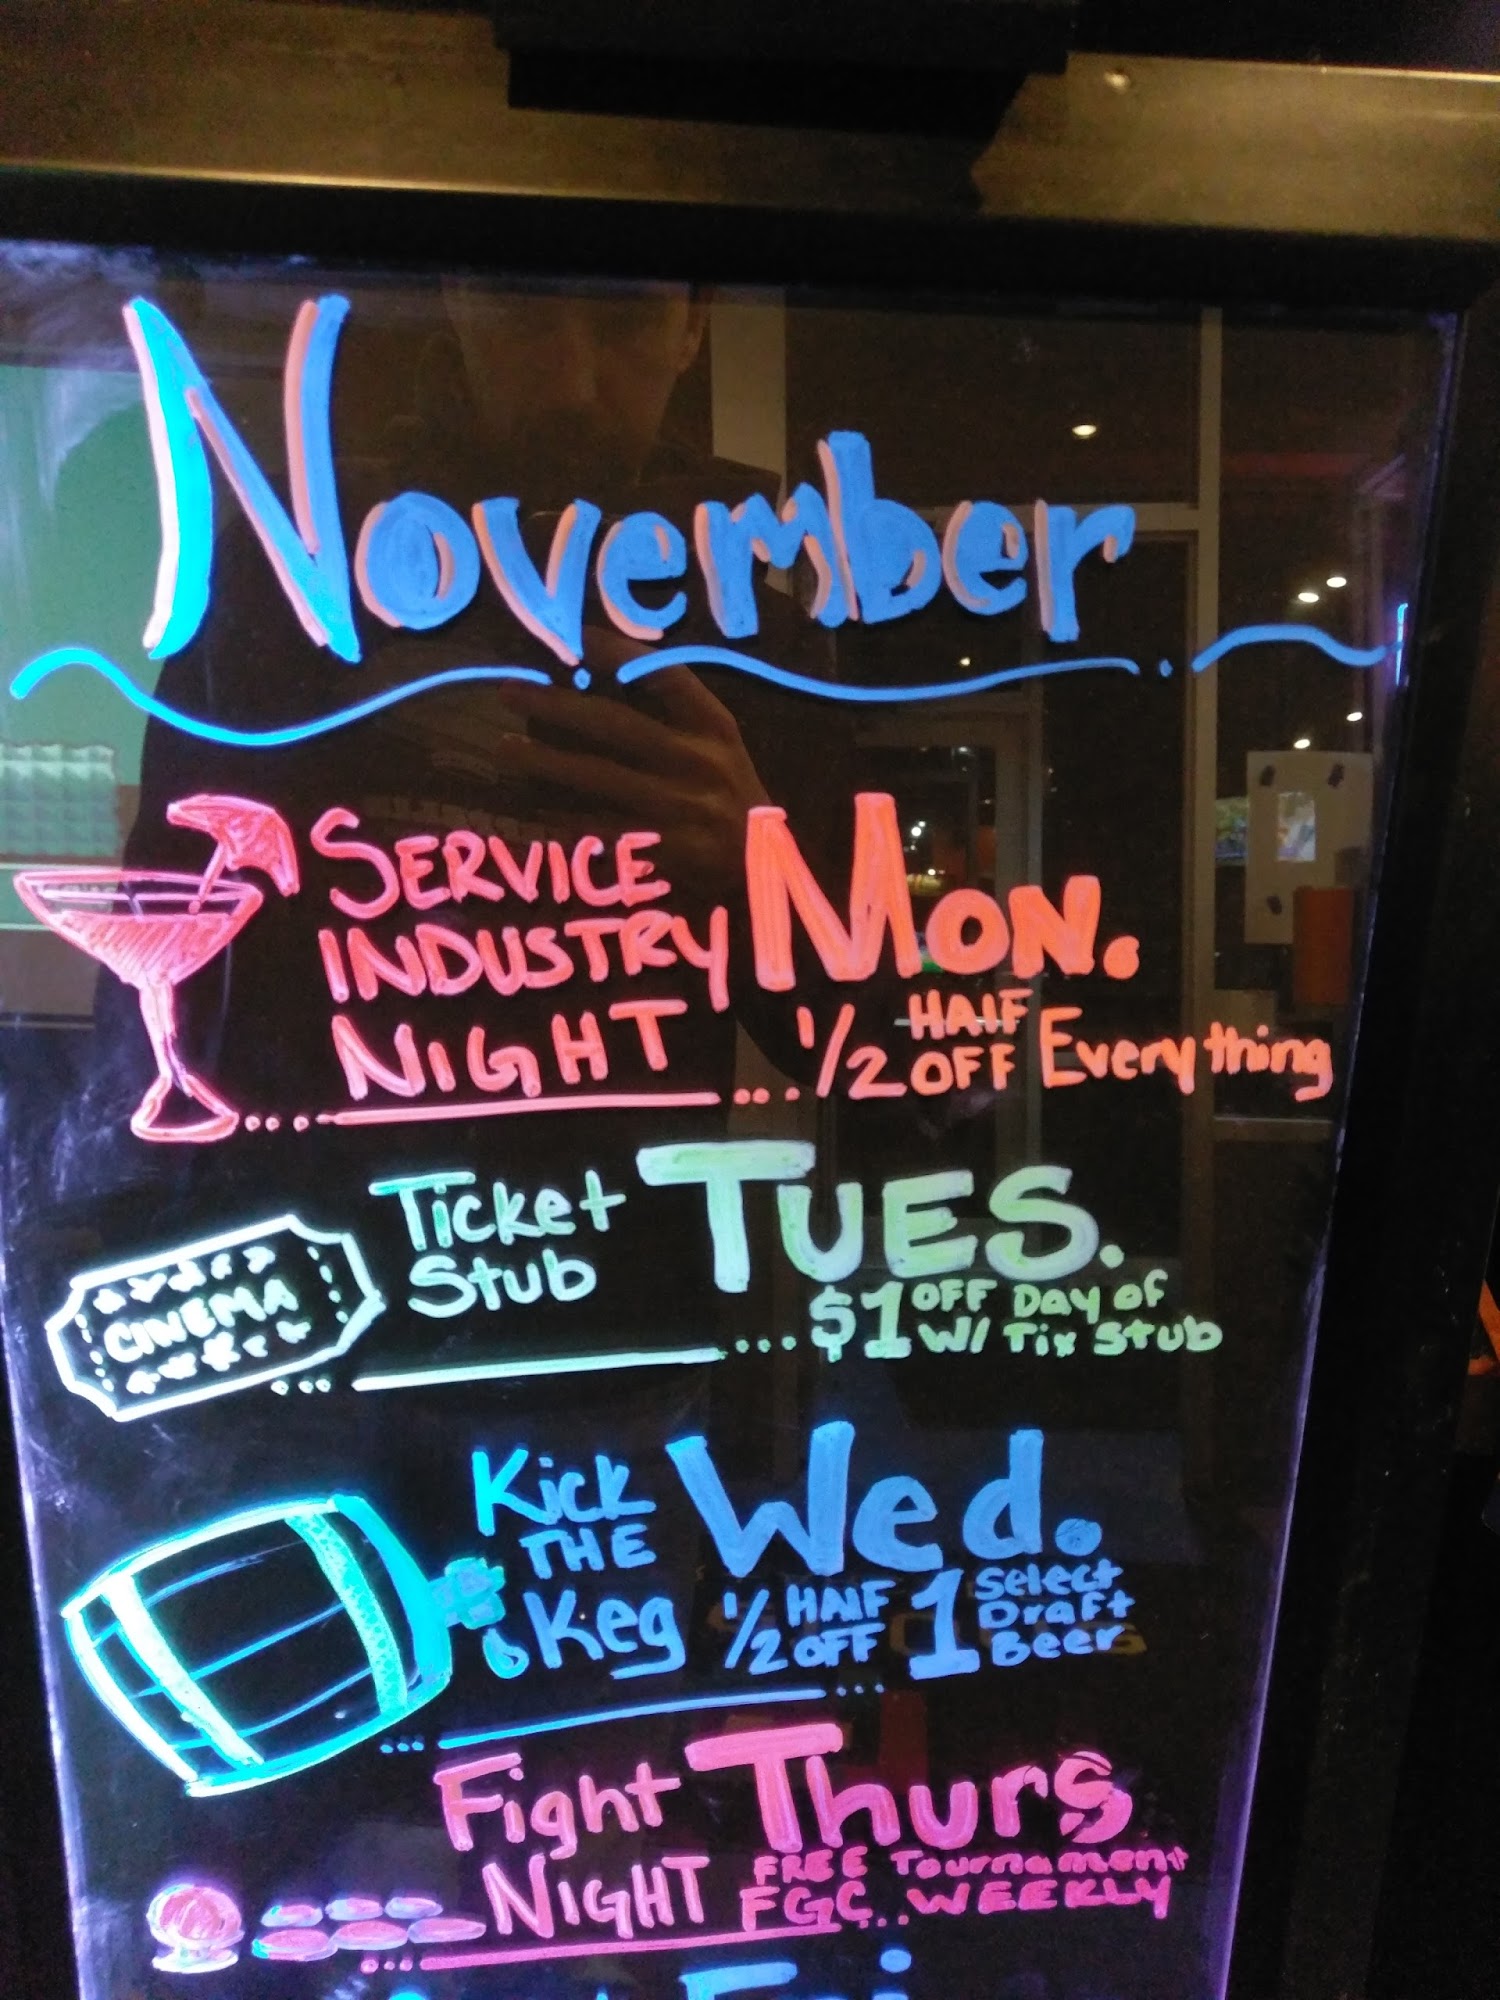 November
SERVICE INDUSTRY NIGHT
MON.
1/2 HALF OFF Everything
CINEMA
Ticket Stub
TUES.
$1 OFF Day of W/ Tix Stub
Kick THE Keg
Wed.
1/2 HALF OFF 1 Select Draft Beer
Fight NIGHT
Thurs
FREE Tournament
FGC WEEKLY
Fri